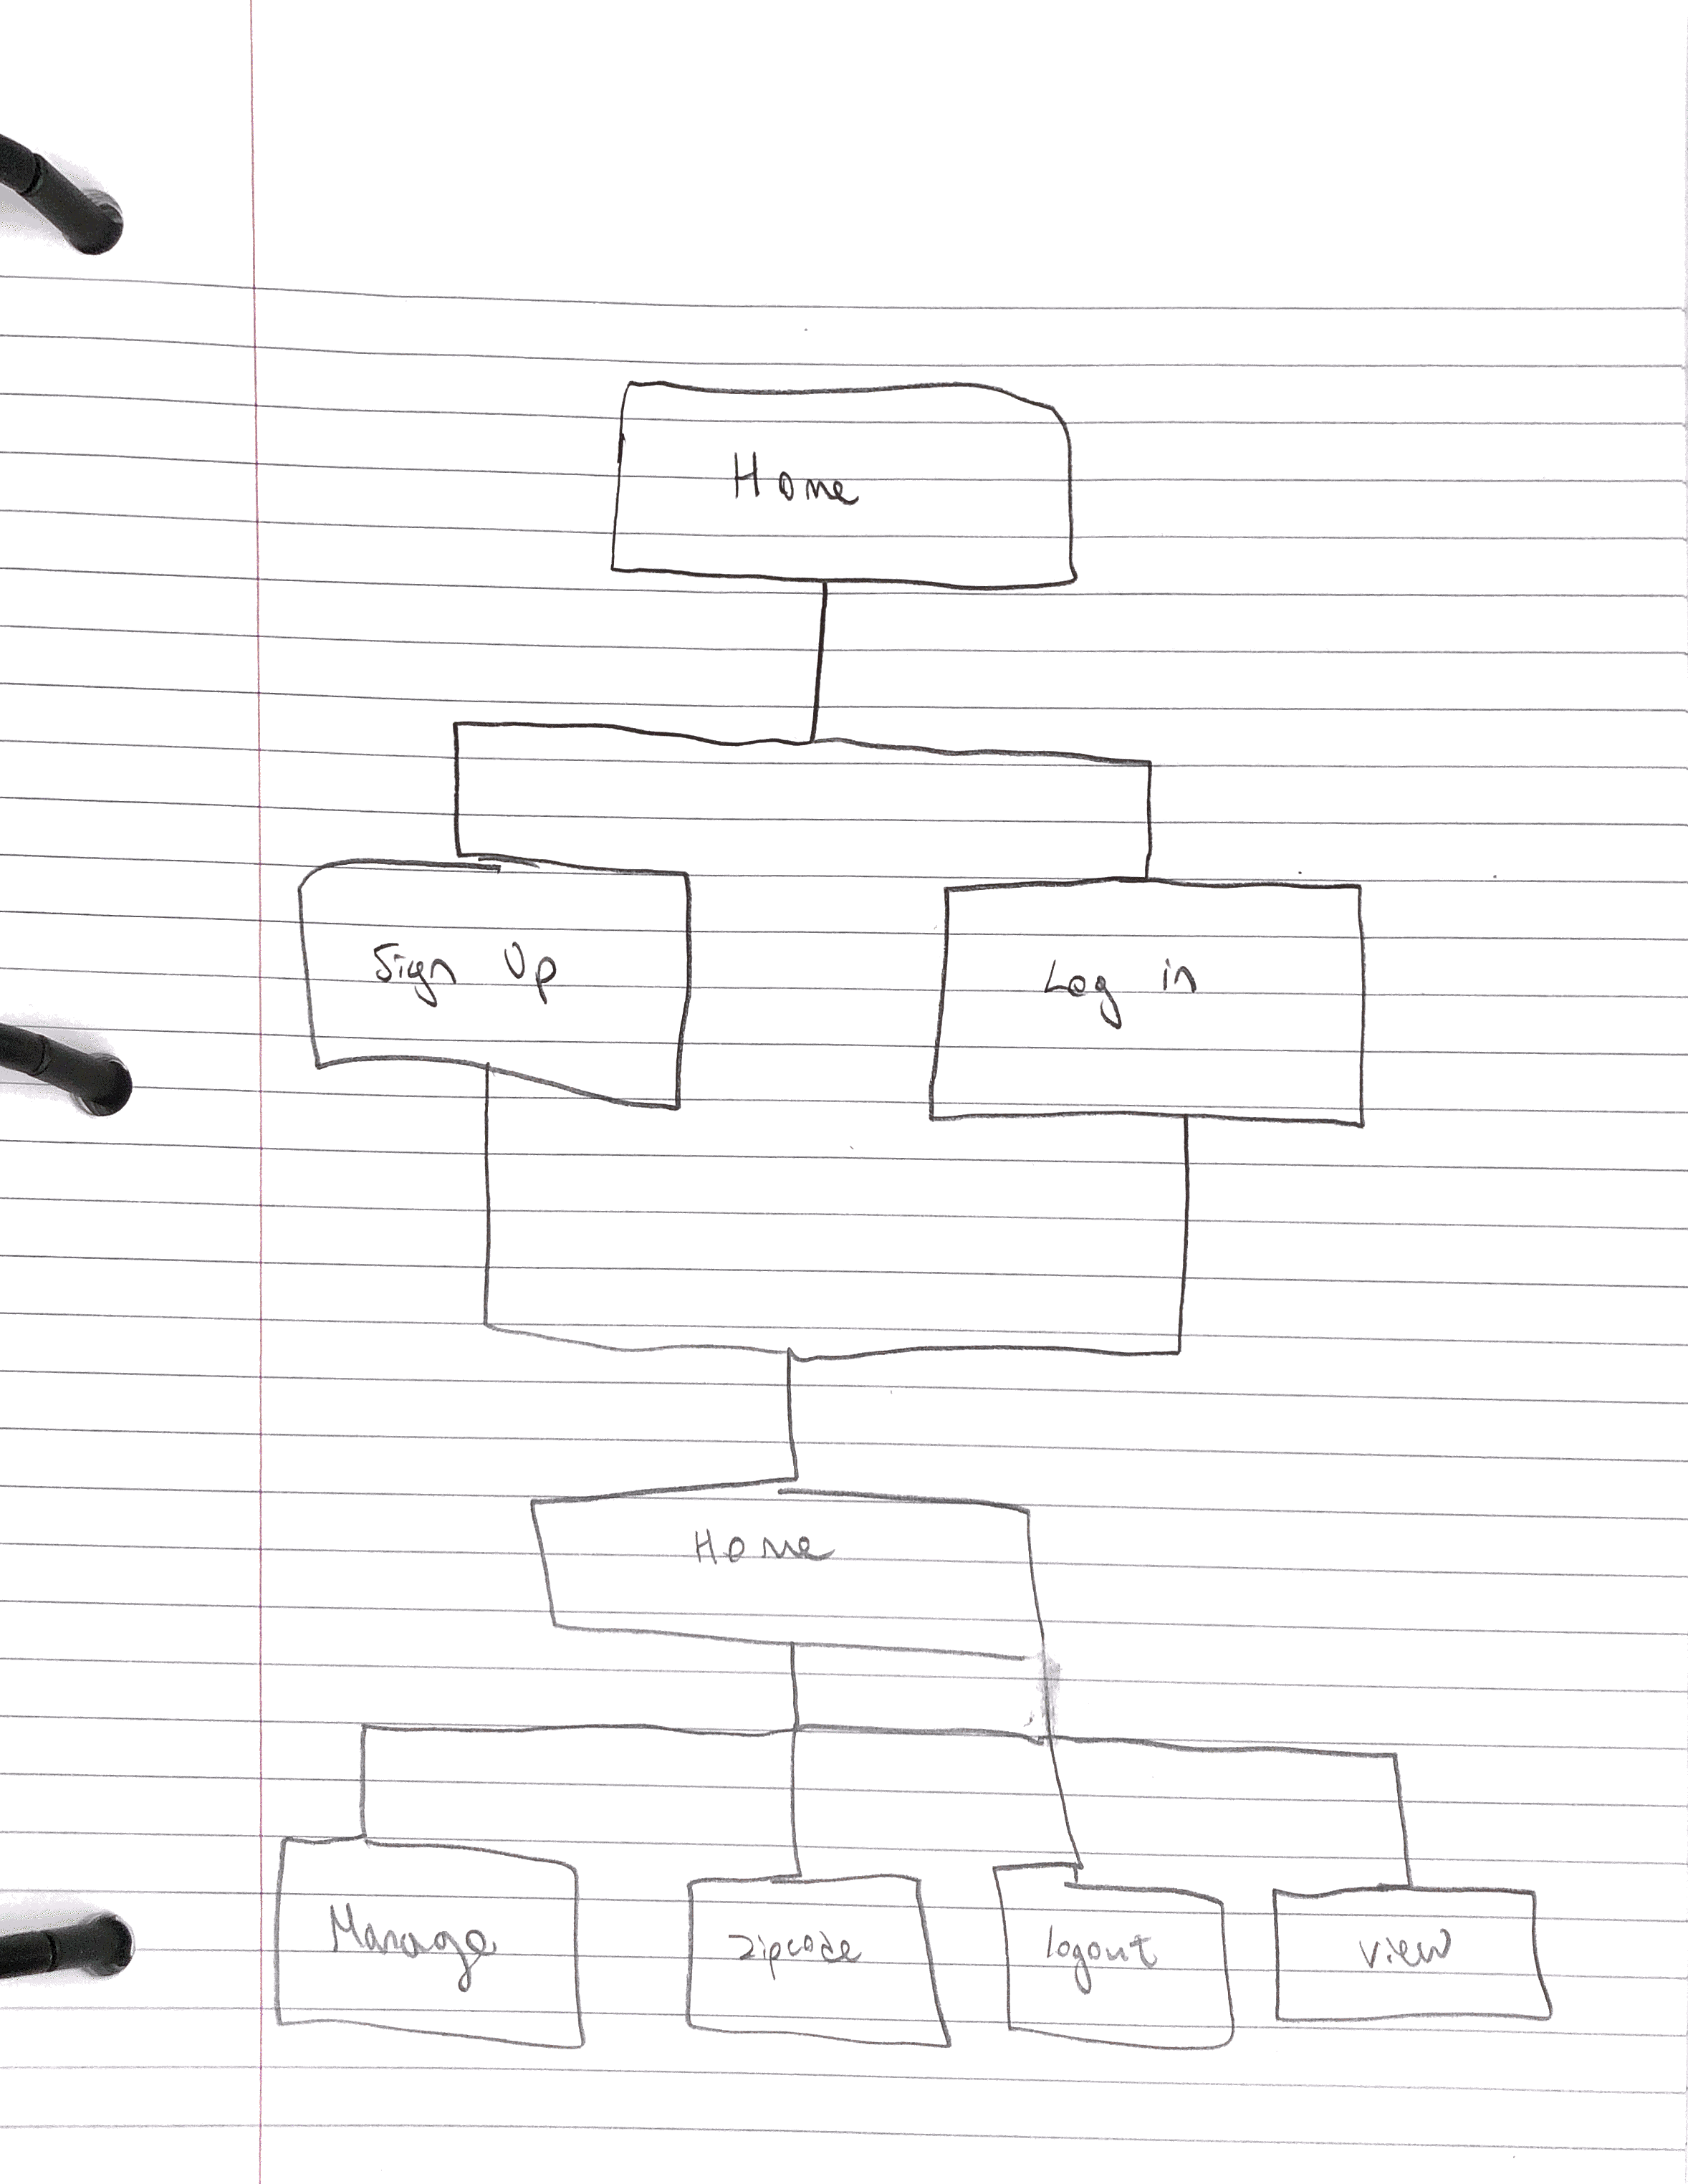 Home
Sign Up
Log in
Home
Manage
zipcode
logout
view